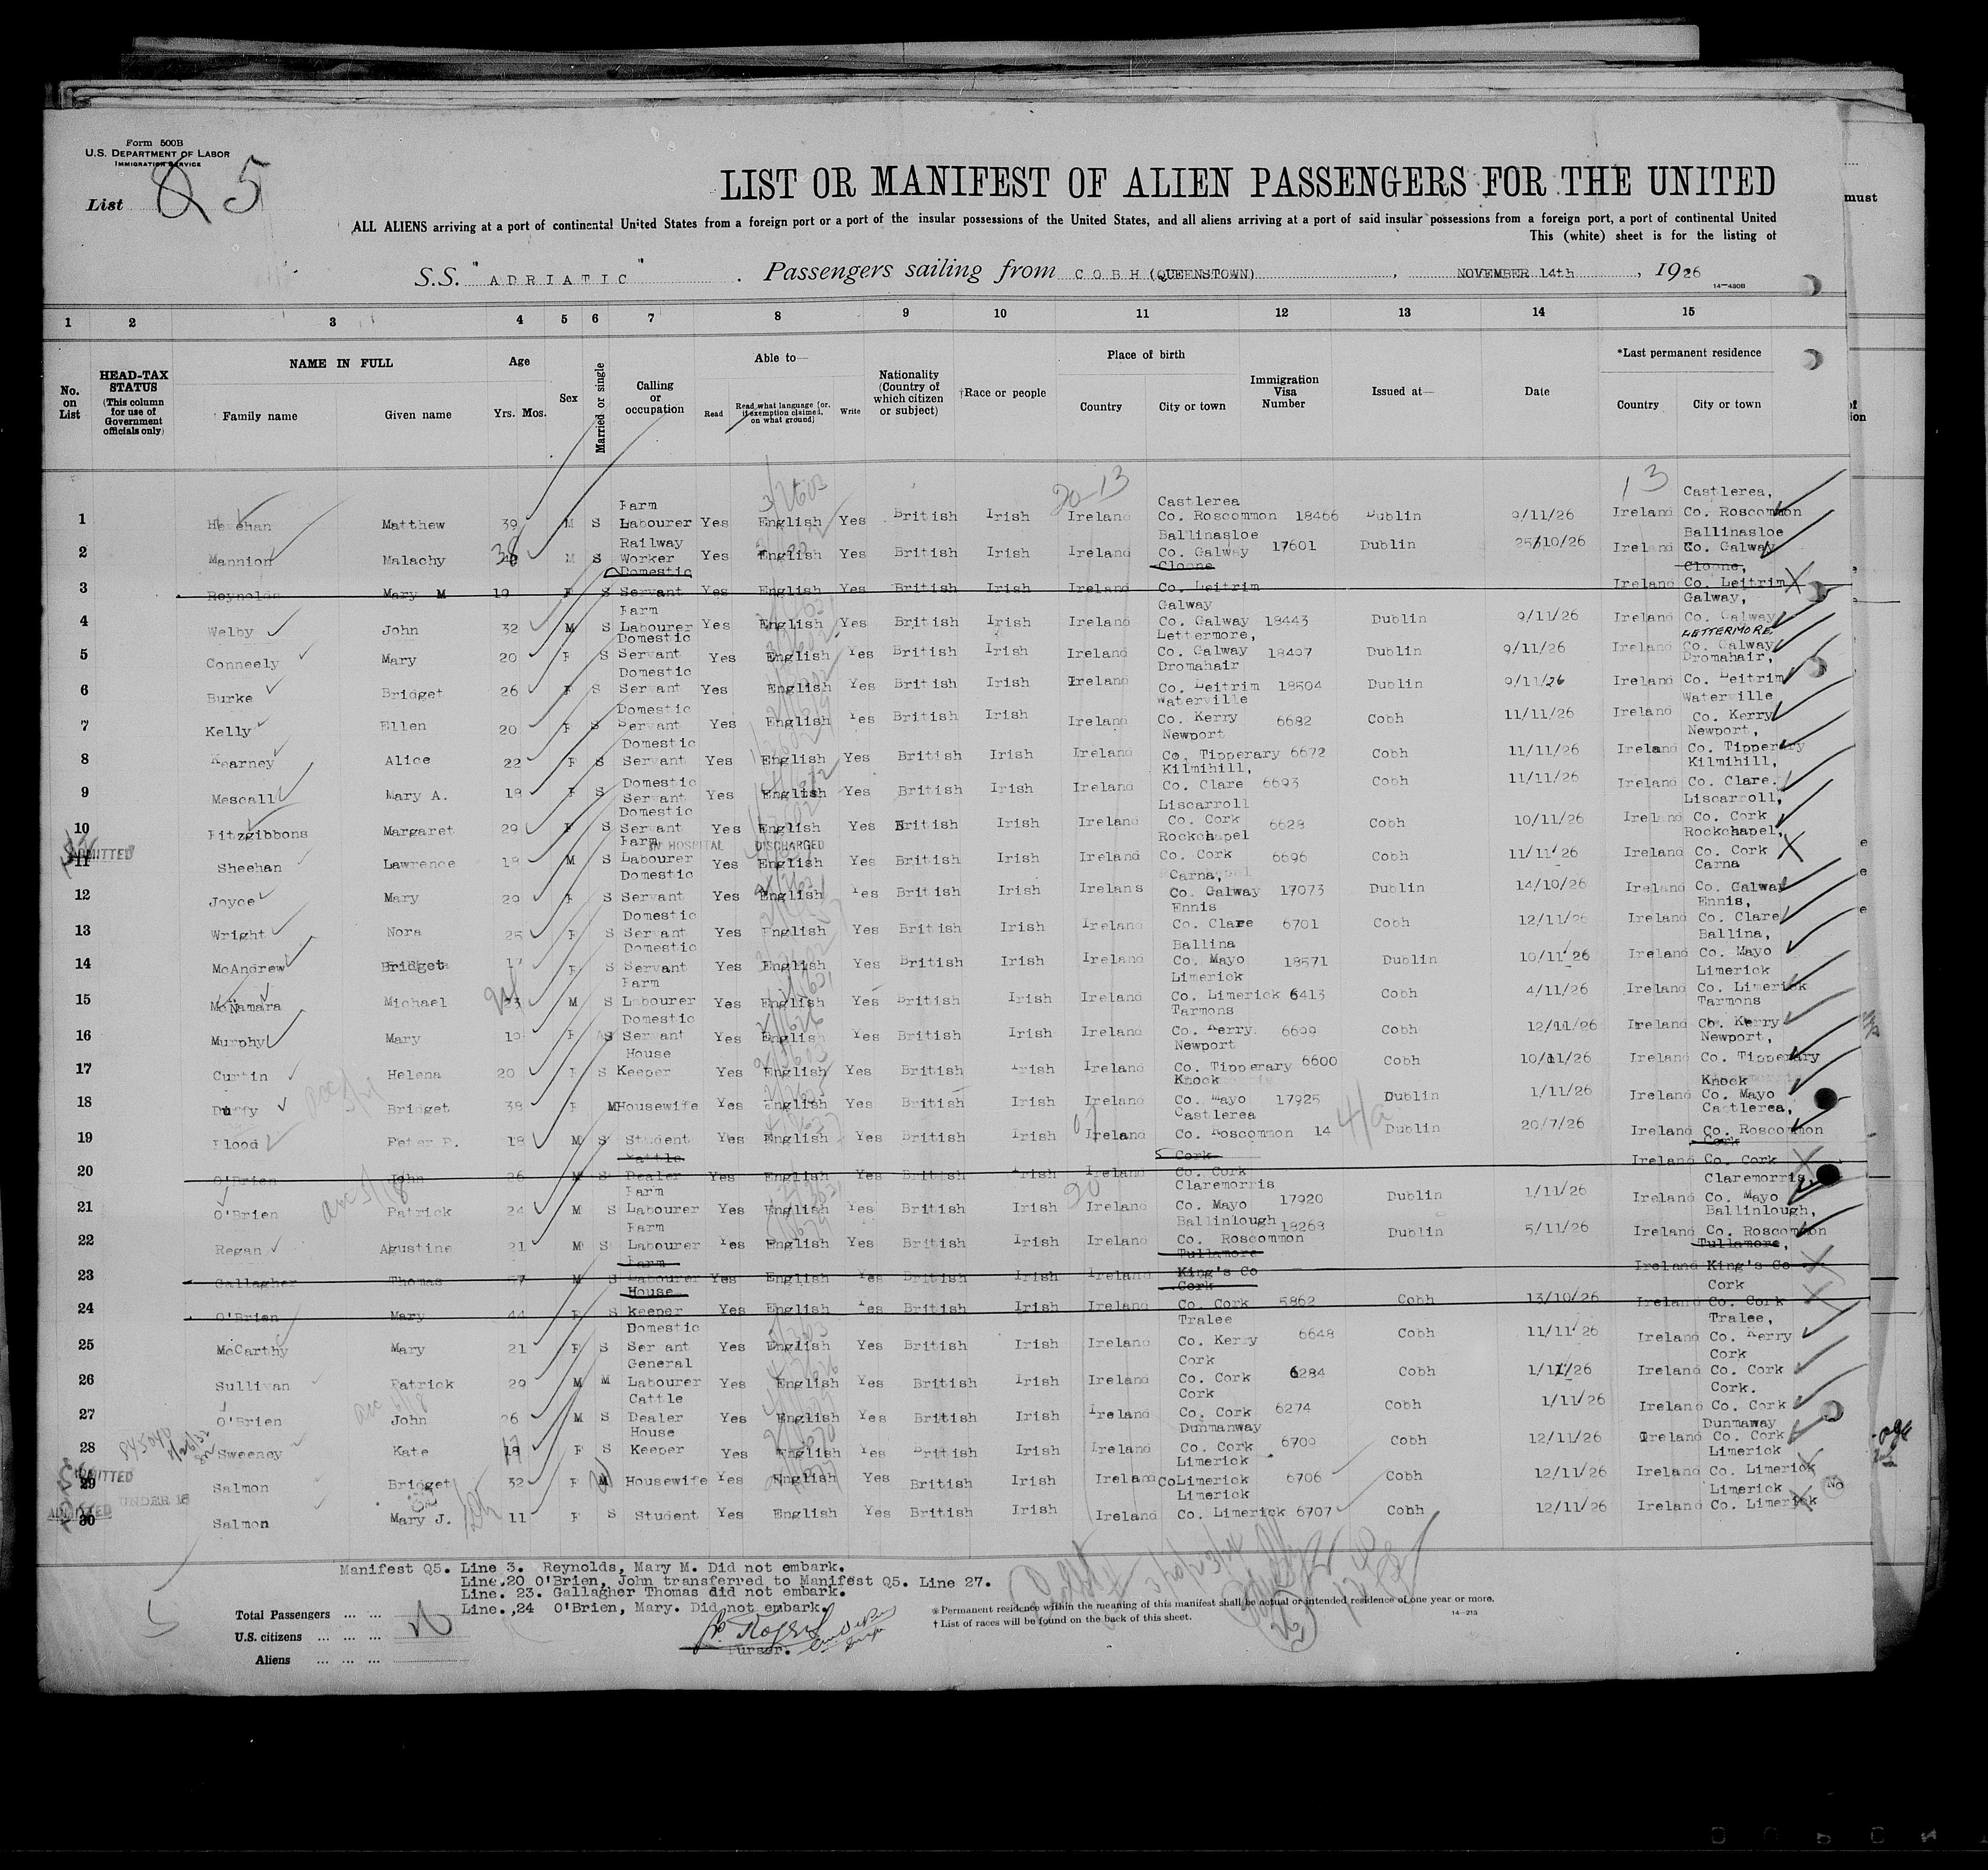 Form 500B
U.S. DEPARTMENT OF LABOR
IMMIGRATION SERVICE
List Q 5
LIST OR MANIFEST OF ALIEN PASSENGERS FOR THE UNITED
ALL ALIENS arriving at a port of continental United States from a foreign port or a port of the insular possessions of the United States, and all aliens arriving at a port of said insular possessions from a foreign port, a port of continental United
This (white) sheet is for the listing of
S.S. "ADRIATIC" . Passengers sailing from COBH (QUEENSTOWN) , NOVEMBER 14th , 1926
14—430B
1 2 3 4 5 6 7 8 9 10 11 12 13 14 15
No. on List HEAD-TAX STATUS (This column for use of Government officials only) NAME IN FULL Family name Given name Age Yrs. Mos. Sex Married or single Calling or occupation Able to— Read Read what language (or, if exemption claimed, on what ground) Write Nationality (Country of which citizen or subject) †Race or people Place of birth Country City or town Immigration Visa Number Issued at— Date *Last permanent residence Country City or town
20-13 13
1 Hevehan Matthew 39 M S Farm Labourer Yes English Yes British Irish Ireland Castlerea Co. Roscommon 18466 Dublin 9/11/26 Ireland Castlerea, Co. Roscommon
2 Mannion Malachy 38 M S Railway Worker Yes English Yes British Irish Ireland Ballinasloe Co. Galway 17601 Dublin 25/10/26 Ireland Ballinasloe Co. Galway
3 Reynolds Mary M 19 F S Domestic Servant Yes English Yes British Irish Ireland Cloone Co. Leitrim Ireland Cloone, Co. Leitrim
4 Welby John 32 M S Farm Labourer Yes English Yes British Irish Ireland Galway Co. Galway 18443 Dublin 9/11/26 Ireland Galway, Co. Galway
5 Conneely Mary 20 F S Domestic Servant Yes English Yes British Irish Ireland Lettermore, Co. Galway 18497 Dublin 9/11/26 Ireland LETTERMORE, Co. Galway
6 Burke Bridget 26 F S Domestic Servant Yes English Yes British Irish Ireland Dromahair Co. Leitrim 18504 Dublin 9/11/26 Ireland Dromahair, Co. Leitrim
7 Kelly Ellen 20 F S Domestic Servant Yes English Yes British Irish Ireland Waterville Co. Kerry 6682 Cobh 11/11/26 Ireland Waterville Co. Kerry
8 Kearney Alice 22 F S Domestic Servant Yes English Yes British Irish Ireland Newport Co. Tipperary 6672 Cobh 11/11/26 Ireland Newport, Co. Tipperary
9 Mescall Mary A. 18 F S Domestic Servant Yes English Yes British Irish Ireland Kilmihill, Co. Clare 6693 Cobh 11/11/26 Ireland Kilmihill, Co. Clare.
10 Fitzgibbons Margaret 29 F S Domestic Servant Yes English Yes British Irish Ireland Liscarroll Co. Cork 6628 Cobh 10/11/26 Ireland Liscarroll, Co. Cork
ADMITTED IN HOSPITAL DISCHARGED
11 Sheehan Lawrence 18 M S Farm Labourer Yes English Yes British Irish Ireland Rockchapel Co. Cork 6696 Cobh 11/11/26 Ireland Rockchapel, Co. Cork
12 Joyce Mary 20 F S Domestic Servant Yes English Yes British Irish Irelans Carna, Co. Galway 17073 Dublin 14/10/26 Ireland Carna Co. Galway
13 Wright Nora 25 F S Domestic Servant Yes English Yes British Irish Ireland Ennis Co. Clare 6701 Cobh 12/11/26 Ireland Ennis, Co. Clare
14 McAndrew Bridget 17 F S Domestic Servant Yes English Yes British Irish Ireland Ballina Co. Mayo 18571 Dublin 10/11/26 Ireland Ballina, Co. Mayo
15 McNamara Michael 23 M S Farm Labourer Yes English Yes British Irish Ireland Limerick Co. Limerick 6413 Cobh 4/11/26 Ireland Limerick Co. Limerick
16 Murphy Mary 19 F S Domestic Servant Yes English Yes British Irish Ireland Tarmons Co. Kerry 6699 Cobh 12/11/26 Ireland Tarmons Co. Kerry
17 Curtin Helena 20 F S House Keeper Yes English Yes British Irish Ireland Newport Co. Tipperary 6600 Cobh 10/11/26 Ireland Newport, Co. Tipperary
18 Duffy Bridget 38 F M Housewife Yes English Yes British Irish Ireland Knock Co. Mayo 17925 Dublin 1/11/26 Ireland Knock Co. Mayo
19 Flood Peter P. 18 M S Student Yes English Yes British Irish Ireland Castlerea Co. Roscommon 14 Dublin 20/7/26 Ireland Castlerea, Co. Roscommon
20 O'Brien John 26 M S Cattle Dealer Yes English Yes British Irish Ireland Cork Co. Cork Ireland Cork Co. Cork
21 O'Brien Patrick 24 M S Farm Labourer Yes English Yes British Irish Ireland Claremorris Co. Mayo 17920 Dublin 1/11/26 Ireland Claremorris, Co. Mayo
22 Regan Agustine 21 M S Farm Labourer Yes English Yes British Irish Ireland Ballinlough Co. Roscommon 18268 Dublin 5/11/26 Ireland Ballinlough, Co. Roscommon
23 Gallagher Thomas M S Farm Labourer Yes English Yes British Irish Ireland Tullamore King's Co Ireland Tullamore, King's Co
24 O'Brien Mary 44 F S House keeper Yes English Yes British Irish Ireland Cork Co. Cork 5862 Cobh 13/10/26 Ireland Cork Co. Cork
25 McCarthy Mary 21 F S Domestic Ser ant Yes English Yes British Irish Ireland Tralee Co. Kerry 6648 Cobh 11/11/26 Ireland Tralee, Co. Kerry
26 Sullivan Patrick 29 M M General Labourer Yes English Yes British Irish Ireland Cork Co. Cork 6284 Cobh 1/11/26 Ireland Cork Co. Cork
27 O'Brien John 26 M S Cattle Dealer Yes English Yes British Irish Ireland Cork Co. Cork 6274 Cobh 1/11/26 Ireland Cork. Co. Cork
28 Sweeney Kate F S House Keeper Yes English Yes British Irish Ireland Dunmanway Co. Cork 6709 Cobh 12/11/26 Ireland Dunmaway Co. Cork
ADMITTED
29 Salmon Bridget 32 F M Housewife Yes English Yes British Irish Ireland Limerick Co Limerick 6706 Cobh 12/11/26 Ireland Limerick Co. Limerick
ADMITTED UNDER 16
30 Salmon Mary J. 11 F S Student Yes English Yes British Irish Ireland Limerick Co. Limerick 6707 Cobh 12/11/26 Ireland Limerick Co. Limerick
No
Manifest Q5. Line 3. Reynolds, Mary M. Did not embark.
Line.20 O'Brien, John transferred to Manifest Q5. Line 27.
Line. 23. Gallagher Thomas did not embark.
Line.,24 O'Brien, Mary. Did not embark.
Total Passengers ... ...
U.S. citizens ... ... ...
Aliens ... ... ...
Purser.
* Permanent residence within the meaning of this manifest shall be actual or intended residence of one year or more.
† List of races will be found on the back of this sheet.
14—213
must